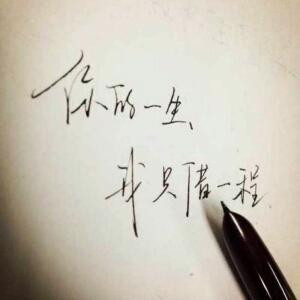 你的一生、
我只借一程